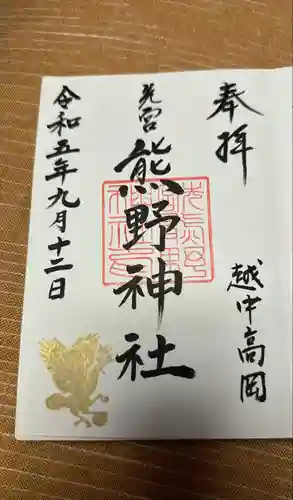 奉拝
越中高岡
先宮
熊野神社
令和五年九月十二日